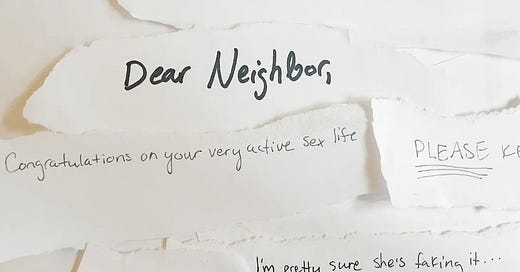 Dear Neighbor,
Congratulations on your very active sex life
PLEASE
I'm pretty sure she's faking it...